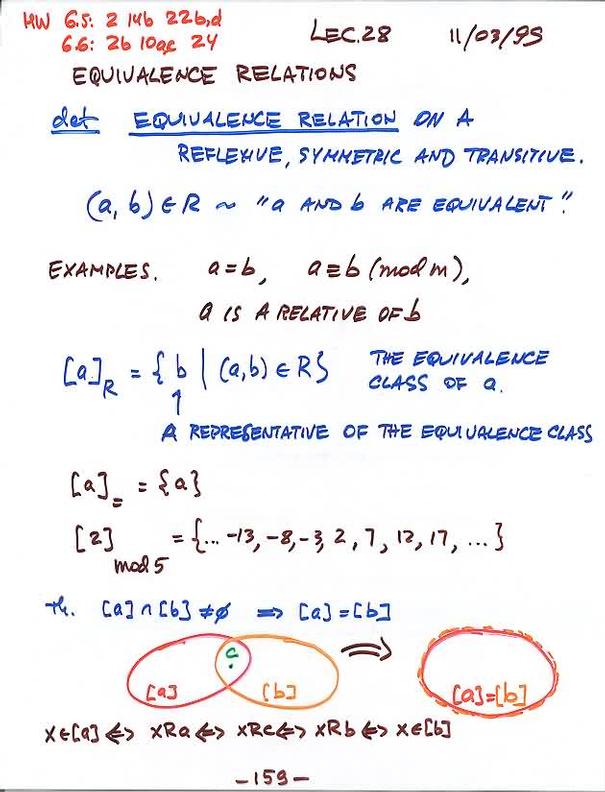 HW 6.5: 2 14b 22b,d
6.6: 2b 10ac 24
LEC.28 11/03/99
EQUIVALENCE RELATIONS
def EQUIVALENCE RELATION ON A
REFLEXIVE, SYMMETRIC AND TRANSITIVE.
(a, b) ∈ R ~ "a AND b ARE EQUIVALENT".
EXAMPLES. a = b, a ≡ b (mod m),
a IS A RELATIVE OF b
[a]_R = { b | (a,b) ∈ R} THE EQUIVALENCE
CLASS OF a.
↑
A REPRESENTATIVE OF THE EQUIVALENCE CLASS
[a]_= = {a}
[2]_mod 5 = {... -13, -8, -3, 2, 7, 12, 17, ...}
th. [a] ∩ [b] ≠ ∅ ⇒ [a] = [b]
c
[a] [b] ⇒ [a]=[b]
x∈[a] ⇔ xRa ⇔ xRc ⇔ xRb ⇔ x∈[b]
-159-